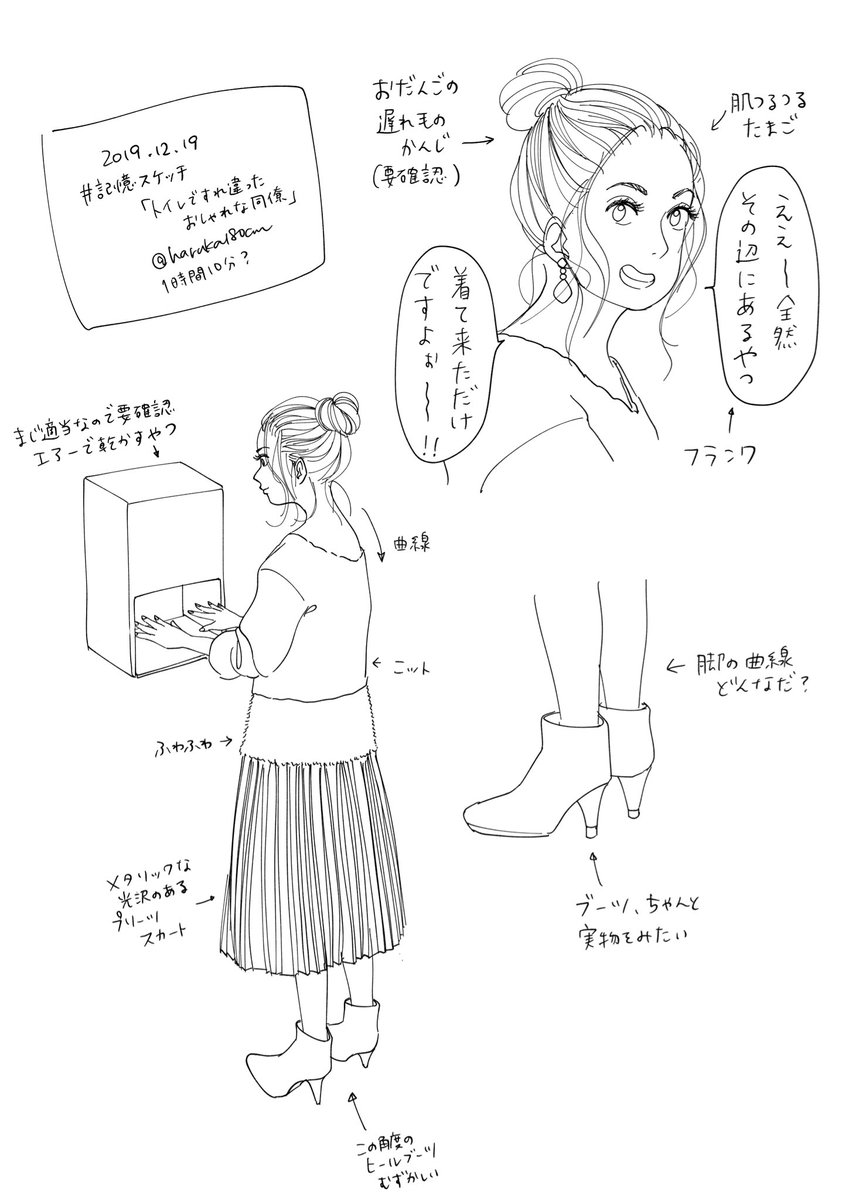 2019.12.19
#記憶スケッチ
「トイレですれ違った
おしゃれな同僚」
@haruka180cm
1時間10分？
おだんごの
遅れ毛の
かんじ
(要確認)
肌つるつる
たまご
ええ〜全然
その辺にあるやつ
フランク
着て来ただけ
ですよぉ〜〜!!
まじ適当なので要確認
エアーで乾かすやつ
曲線
ニット
ふわふわ
メタリックな
光沢のある
プリーツ
スカート
脚の曲線
どんなだ？
ブーツ、ちゃんと
実物をみたい
この角度の
ヒールブーツ
むずかしい